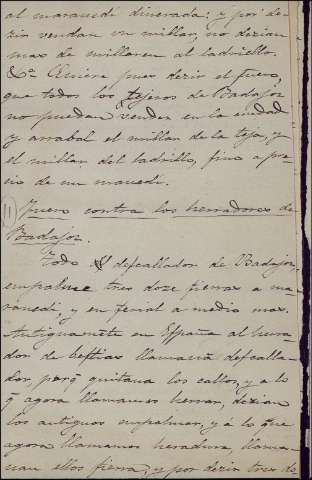 al maravedi dinerada; y por de-
zir vendan un millar, no dezian
mas de millaren al ladriello.
&a Quiere pues dezir el fuero,
que todos los tejeros de Badajoz
no puedan vender en la ciudad
y arrabal el millar de la teja, y
el millar del ladrillo, sino a pre-
cio de un maravedi.
11) Fuero contra los herradores de
Badajoz.
Todo descallador de Badajoz,
empalme tres doze fierras a ma-
ravedi, y en ferial a medio mas.
Antiguamente en España al herra-
dor de bestias llamavan descalla-
dor, porq quitava los callos, y a lo
q agora llamamos herrar, dezian
los antiguos empalmar, y á lo que
agora llamamos heradura, llama-
van ellos fierra, y por dezir tres do-